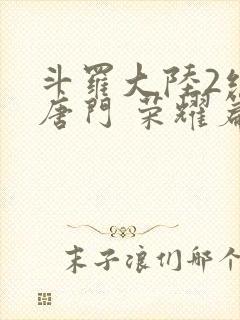 斗羅大陸2絕
唐門 榮耀篇
末子浪们那个